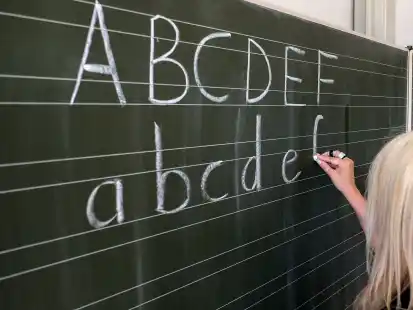 ABCDEF
abcdef